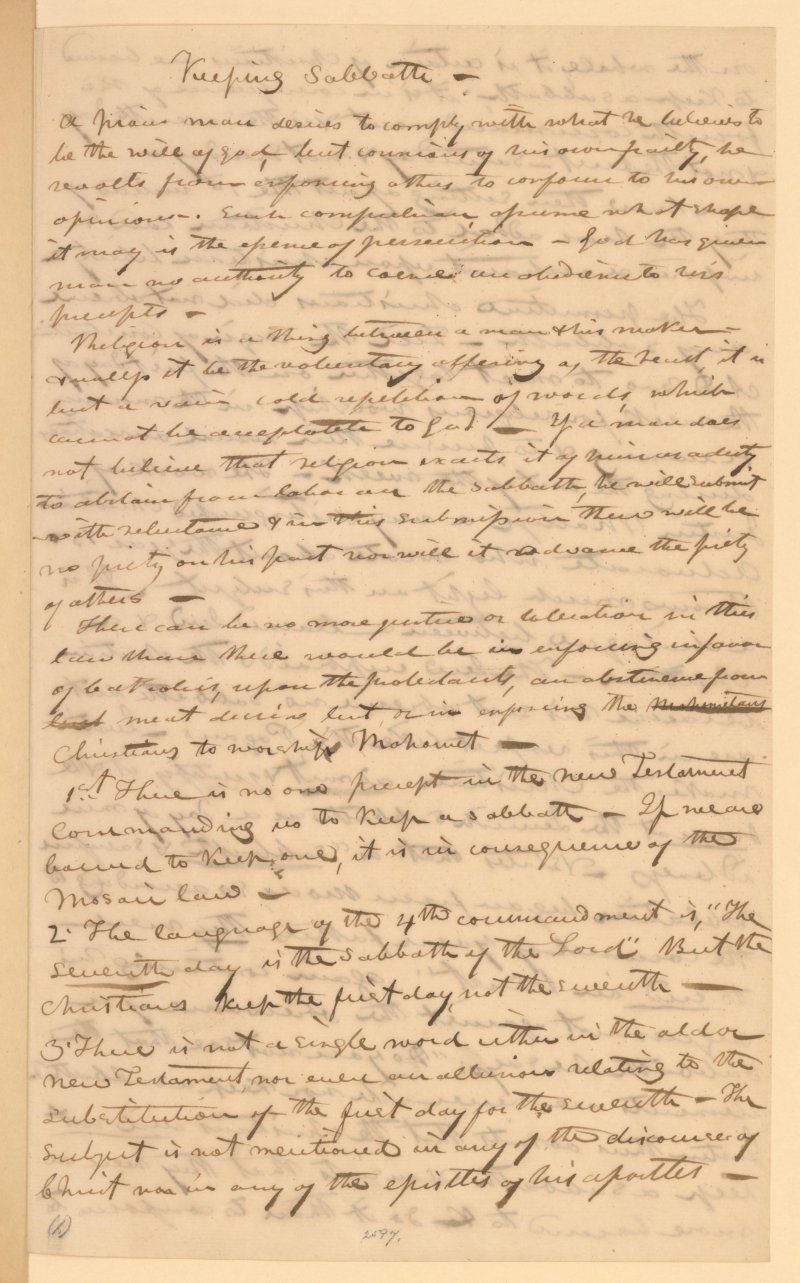 Keeping Sabbath —
A pious man desires to comply with what he believes to
be the will of God, but conscious of his own frailty, he
revolts from forcing others to conform to his own
opinions. Such compulsion, assume what shape
it may is the essence of persecution — God has given
man no authority to coerce an obedience to his
precepts —
Religion is a thing between a man & his maker —
& unless it be the voluntary offering of the heart, it is
but a vain cold repetition of words, which
cannot be acceptable to God — If a man does
not believe that religion exacts it of him as a duty
to abstain from labor on the Sabbath, he will submit
with reluctance & in this submission there will be
no piety on his part nor will it advance the piety
of others —
There can be no more justice or toleration in this
law than there would be in enforcing in favor
of Catholics, upon the protestants, an abstinence from
meat during lent, or in enforcing the Mahometans
Christians to worship Mahomet —
1st There is no one precept in the new Testament
commanding us to keep a sabbath — If we are
bound to keep one, it is in consequence of the
Mosaic law —
2. The language of the 4th commandment is, "The
seventh day is the Sabbath of the Lord" But the
Christians keep the first day, not the seventh —
3. There is not a single word either in the old or
new Testament, nor even an allusion relating to the
substitution of the first day for the seventh — The
subject is not mentioned in any of the discourses of
Christ nor in any of the epistles of his apostles —
(1)
2597.